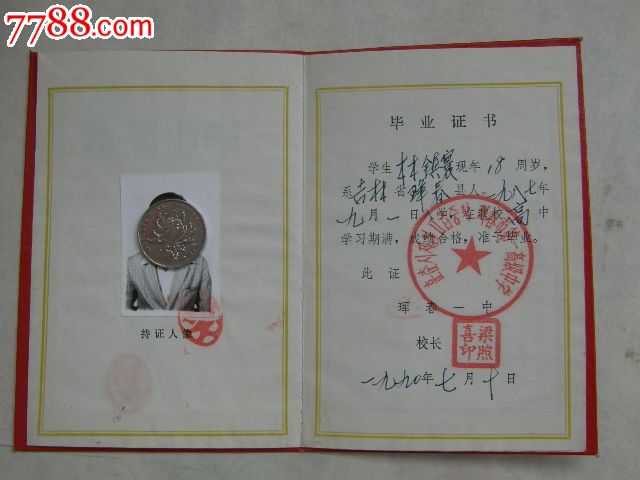 7788.com
持证人像
毕业证书
学生林鎮寰现年18周岁，
系吉林省珲春县人。一九八七年
九月一日入学，在我校高中
学习期满，成绩合格，准予毕业。
此证
珲春一中
校长
梁照喜印
一九九〇年七月十日